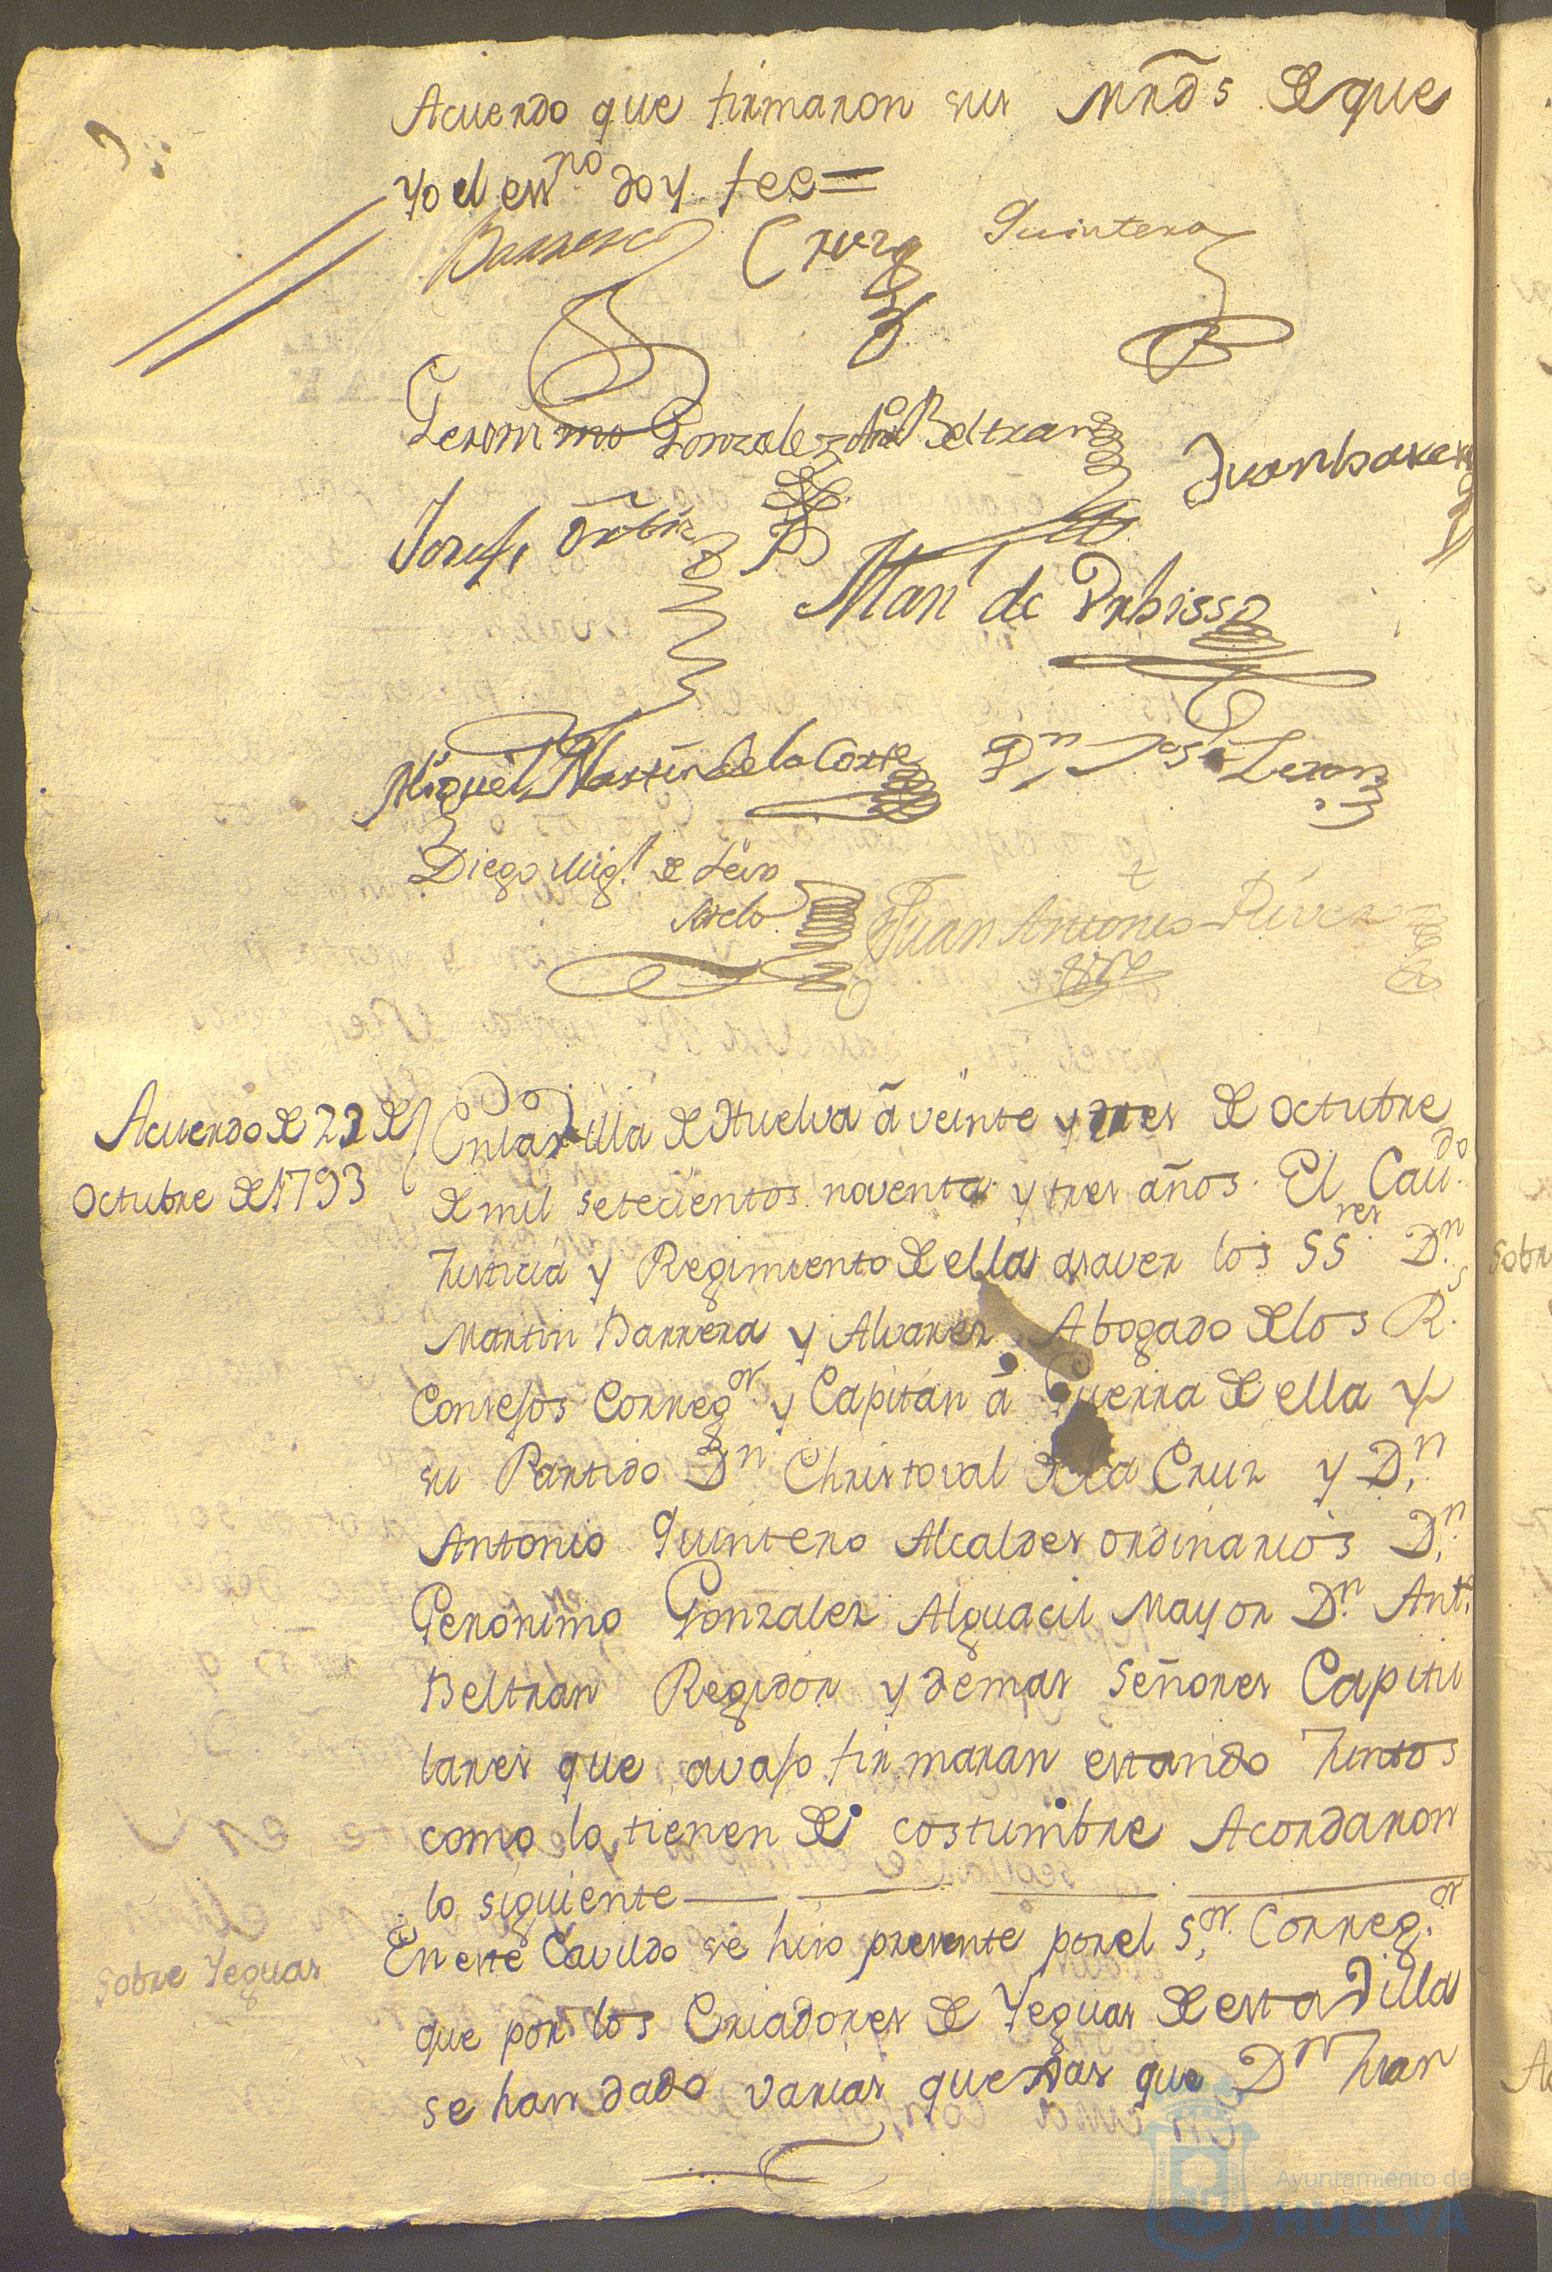 Acuerdo que firmaron sus Mrds de que
yo el essno doy fee =
Barrera Cruz Quintero
Geronimo Gonzalez Anto Beltran
Josef
Man de Urbissa
Miguel Martin de la Corte Dn Jose Leron
Diego Migl de Leiro
Melo Juan Antonio Rivera
Acuerdo de 23 de
Octubre de 1793
En la Villa de Huelva â veinte y tres de octubre
de mil setecientos noventa y tres años. El Cavdo
Justicia y Regimiento de ella asaver los SSres Dn
Martin Barrera y Alvarez Abogado de los Rs
Consejos Corregor y Capitán â Guerra de ella y
su Partido Dn Christoval de la Cruz y Dn
Antonio Quintero Alcaldes ordinarios Dn
Gerónimo Gonzalez Alguacil Mayor Dn Anto
Beltran Regidór y demas Señores Capitu
lares que avajo firmaran estando Juntos
como lo tienen de costumbre Acordaron
lo siguiente
Sobre Yeguas
En este Cavildo se hiso presente por el Sor Corregor
que por los Criadores de Yeguas de esta Villa
se han dado varias quexas que Dn Juan
Ayuntamiento de
HUELVA